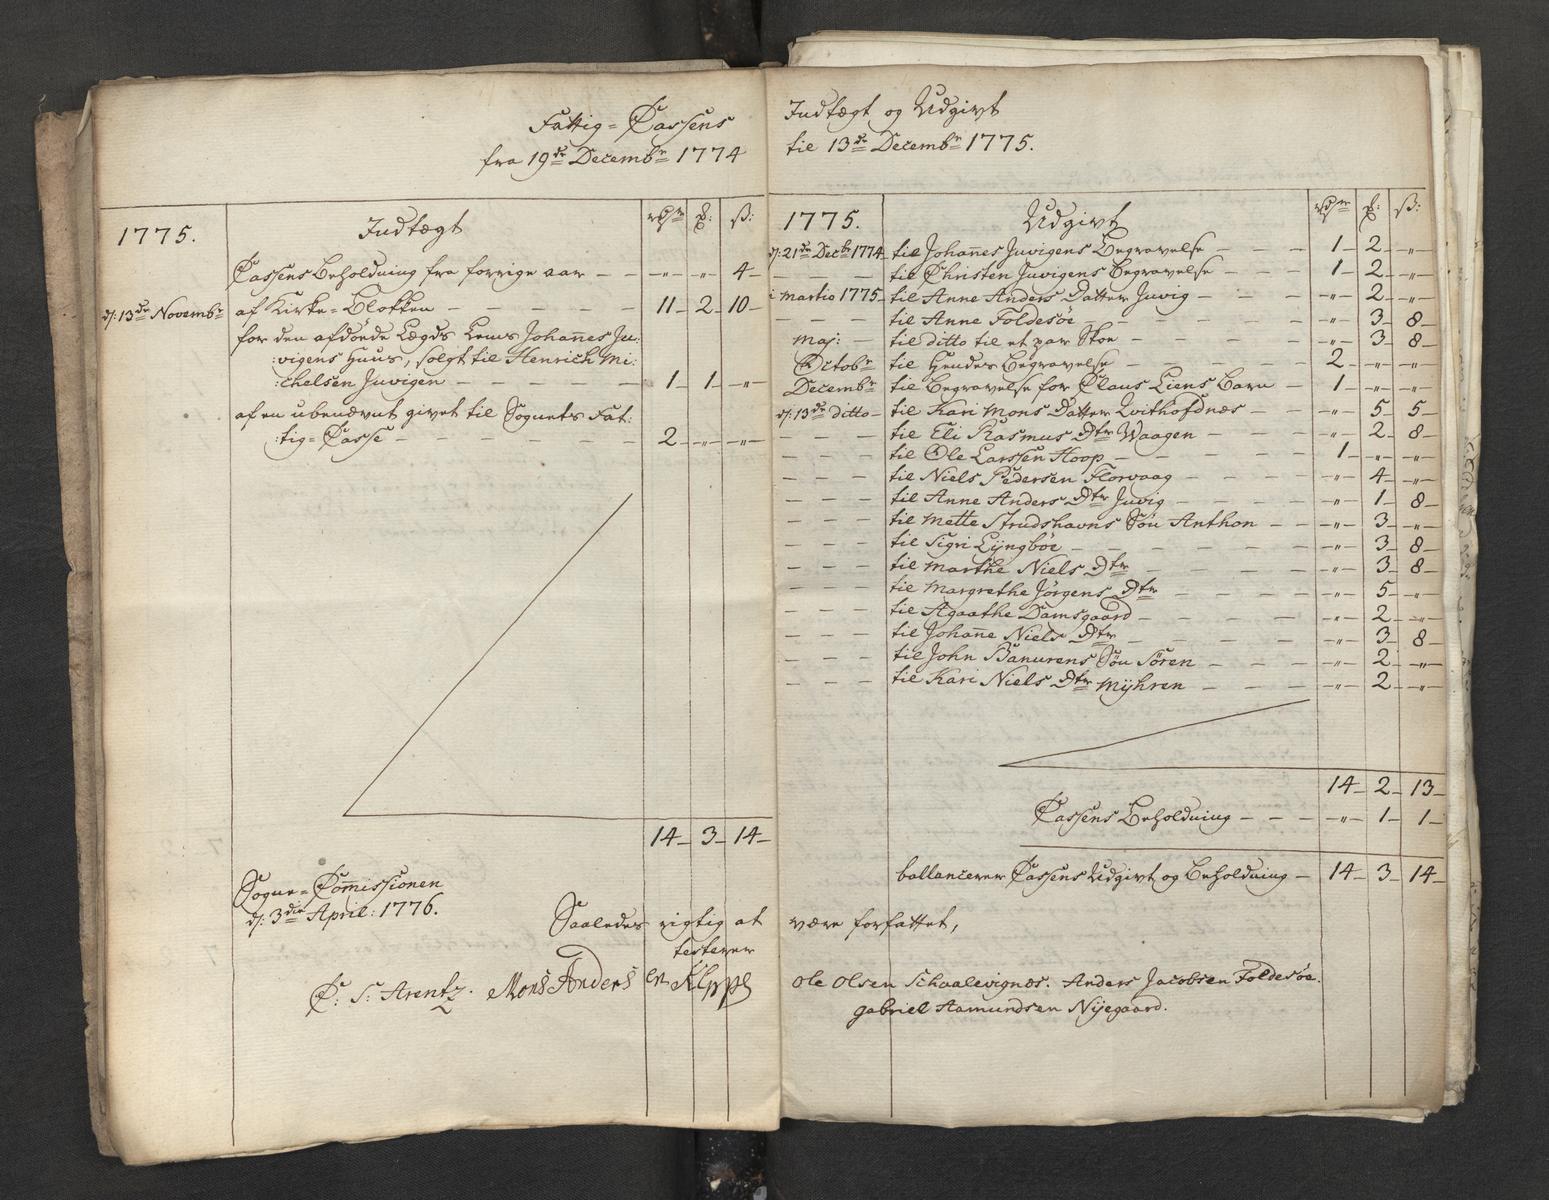 Fattig=Cassens
fra 19de Decembr 1774
1775. Indtægt rdr m: s:
Cassens Beholdning fra forrige aar – – –„– –„– 4–
d: 13de Novembr af Kirke=Blokken – – – – 11– 2– 10–
for den afdøede Lægds Lems Johannes Ju:
:vigens Huus, solgt til Henrich Mi:
:chelsen Juvigen – – – – – 1– 1– –„–
af en ubenævnt givet til Sognets Fat:
:tig=Casse – – – – – – 2– –„– –„–
14– 3– 14–
Sogne=Com̄issionen
d: 3die April: 1776.
Saaledes rigtig at
testerer
C: S: Arentz. Mons Anders en Klppe
Indtægt og Udgivt
til 13de Decembr 1775.
1775. Udgivt rdr m: s:
d: 21de Decbr 1774 til Johan̄es Juvigens Begravelse – – – 1– 2– –„–
– – – til Christen Juvigens Begravelse – – – 1– 2– –„–
i Martio 1775 til Anne Anders Datter Juvig – – – –„– 2– –„–
– – – til Anne Foldesøe – – – – –„– 3– 8–
Maj: – til ditto til et par Skoe – – – –„– 3– 8–
Octobr til Hendes Begravelse – – – 2– –„– –„–
Decembr til Begravelse for Claus Liens Barn – – 1– –„– –„–
d: 13de ditto – til Kari Mons Datter Qvithofdnæs – – –„– 5– 5–
– – – til Eli Rasmus Dtr Waagen – – – –„– 2– 8–
– – – til Ole Larssen Hoop – – – – 1– –„– –„–
– – – til Niels Pedersen Florvaag – – – –„– 4– –„–
– – – til Anne Anders Dtr Juvig – – – –„– 1– 8–
– – – til Mette Strudshavns Søn Anthon – – –„– 3– –„–
– – – til Sigri Lyngbøe – – – – –„– 3– 8–
– – – til Marthe Niels Dtr – – – –„– 3– 8–
– – – til Margrethe Jørgens Dtr – – – –„– 5– –„–
– – – til Agaathe Damsgaard – – – –„– 2– –„–
– – – til Johan̄e Niels Dtr – – – –„– 3– 8–
– – – til John Banurens Søn Søren – – – –„– 2– –„–
– – – til Kari Niels Dtr Myhren – – – –„– 2– –„–
14– 2– 13–
Cassens Beholdning – – – –„– 1– 1–
ballancerer Cassens Udgivt og Beholdning – 14– 3– 14–
være forfattet,
Ole Olsen Schaalevignes. Anders Jacobsen Foldesøe.
gabriel Aamundsen Nyegaard.